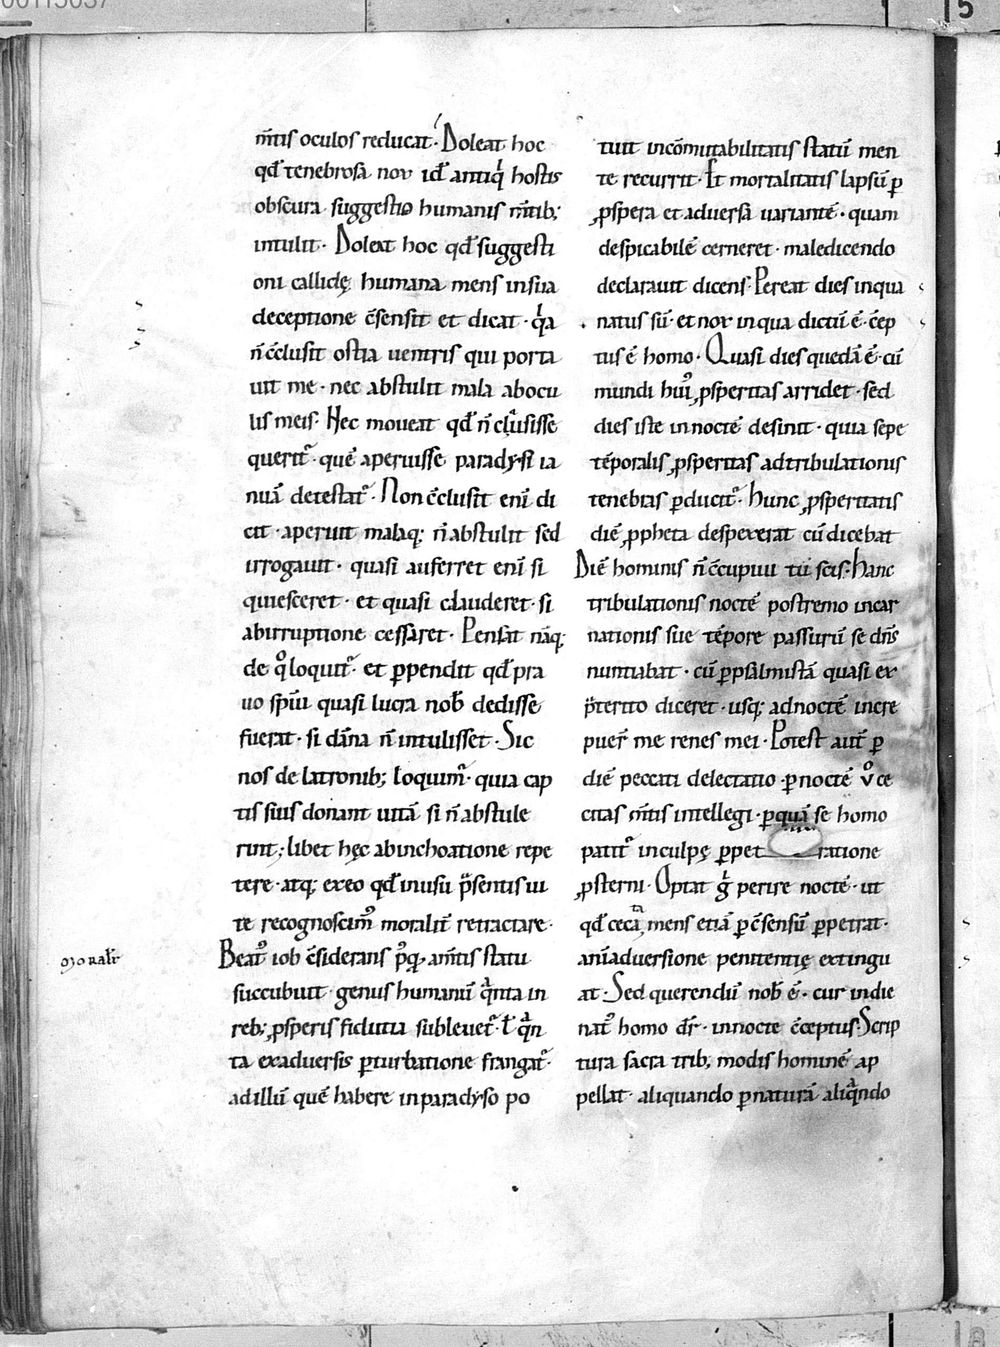 m̅tis oculos reducat· Doleat hoc
qđ tenebrosa nox idē antiqͥ hostis
obscura suggestio humanis m̅tib;
intulit· Doleat hoc qđ suggesti
oni callidę humana mens insua
deceptione c̅sensit et dicat· qͥa
n̅ c̅clusit ostia uentris qui porta
uit me· nec abstulit mala abocu
lis meis· Hec moueat qđ n̅ clusisse
querit᷑· quē aperuisse paradysi ia
nuā detestat᷑· Non c̅clusit eni̅ di
cit· aperuit malaq; n̅ abstulit sed
irrogauit· quasi auferret eni̅ si
quiesceret· et quasi clauderet· si
abirruptione cessaret· Pensat nāq;
de qͦ loquit᷑· et ꝑpendit qđ pra
uo spiū quasi lucra nob̅ dedisse
fuerat· si dāna n̅ intulisset· Sic
nos de latronib; loquim᷑· quia cap
tis suis donant uitā si n̅ abstule
rint; libet hęc abinchoatione repe
tere· atq; ex eo qđ inusu p̅sentis ui
te recognoscimꝰ moralit̅ retractare·
moralit̅
Beatꝰ iob c̅siderans pꝰq; am̅tis statu
succubuit· genus humanū qͣnta in
reb; ꝓsperis fidutia subleuet᷑· ł qͣn
ta exaduersis ꝑturbatione frangat᷑·
adillū quē habere inparadyso po
tuit incōmutabilitatis statū men
te recurrit· Et mortalitatis lapsū ꝑ
ꝓspera et aduersa uariantē· quam
despicabilē cerneret· maledicendo
declarauit dicens· Pereat dies inqua
natus sū· et nox inqua dictū ē· c̅cep
tus ē homo· Quasi dies quedā ē· cū
mundi huiꝰ ꝓsperitas arridet· sed
dies iste innoctē desinit· quia sepe
tēporalis ꝓsperitas adtribulationis
tenebras ꝑducit᷑· hunc ꝓsperitatis
diē ꝓpheta despexerat cū dicebat
Diē hominis n̅ c̅cupiui tu scis· hanc
tribulationis noctē postremo incar
nationis sue tēpore passurū se dn̅s
nuntiabat· cū ꝑpsalmistā quasi ex
p̅terito diceret· usq; adnoctē incre
puer̅ me renes mei· Potest aut̅ ꝑ
diē peccati delectatio· ꝑnoctē vͦ ce
citas m̅tis intellegi· ꝑquā se homo
patit᷑ inculpę ꝑpet ratione
ꝓsterni· Optat gͥ perire noctē· ut
qđ ceca mens etiā ꝑ c̅sensū ꝑpetrat·
anīaduersione penitentię extingu
at· Sed querendū nob̅ ē· cur indie
natꝰ homo dr̅· innocte c̅ceptus· Scrip
tura sacra trib; modis hominē ap
pellat· aliquando ꝑnaturā aliqͣndo